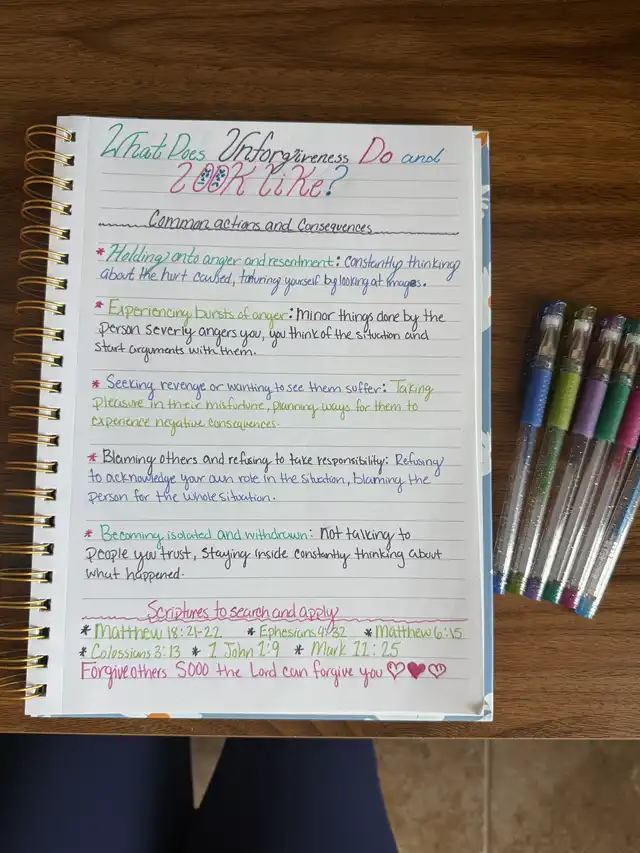 What Does Unforgiveness Do and
Look like?
Common actions and Consequences
* Holding onto anger and resentment: Constantly thinking
about the hurt caused, torturing yourself by looking at images.
* Experiencing bursts of anger: Minor things done by the
person severly angers you, you think of the situation and
start arguments with them.
* Seeking revenge or wanting to see them suffer: Taking
pleasure in their misfortune, planning ways for them to
experience negative consequences.
* Blaming others and refusing to take responsibility: Refusing
to acknowledge your own role in the situation, blaming the
person for the whole situation.
* Becoming isolated and withdrawn: Not talking to
people you trust, staying inside constantly thinking about
what happened.
Scriptures to search and apply
* Matthew 18:21-22 * Ephesians 4:32 * Matthew 6:15
* Colossians 3:13 * 1 John 1:9 * Mark 11:25
Forgive others SOOO the Lord can forgive you ♡♥♡